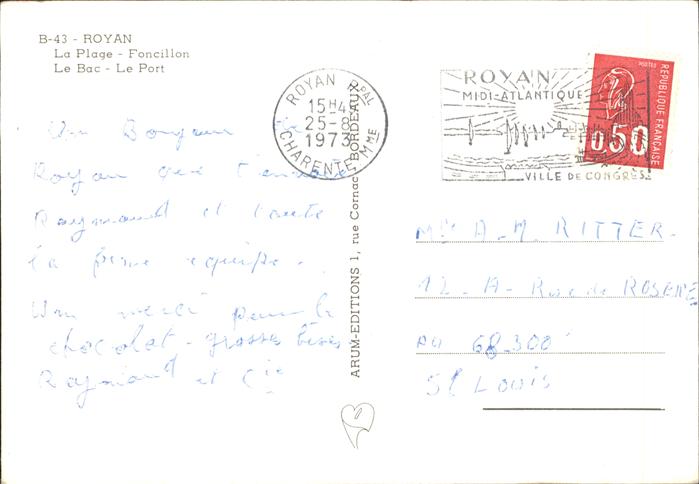 B-43 - ROYAN
La Plage - Foncillon
Le Bac - Le Port
Un Bonjour de
Royan que t'envoie
Raymond et toute
la fine equipe.
Un merci pour le
chocolat - grosses bises
Raymond et Cie
ARUM-EDITIONS 1, rue Cornac, BORDEAUX
ROYAN Rpal
15H4
25-8
1973
CHARENTE Mme
ROYAN
MIDI-ATLANTIQUE
VILLE DE CONGRES
POSTES
REPUBLIQUE FRANÇAISE
0.50
A. M. RITTER
12 - A - Rue de
68.300
St Louis